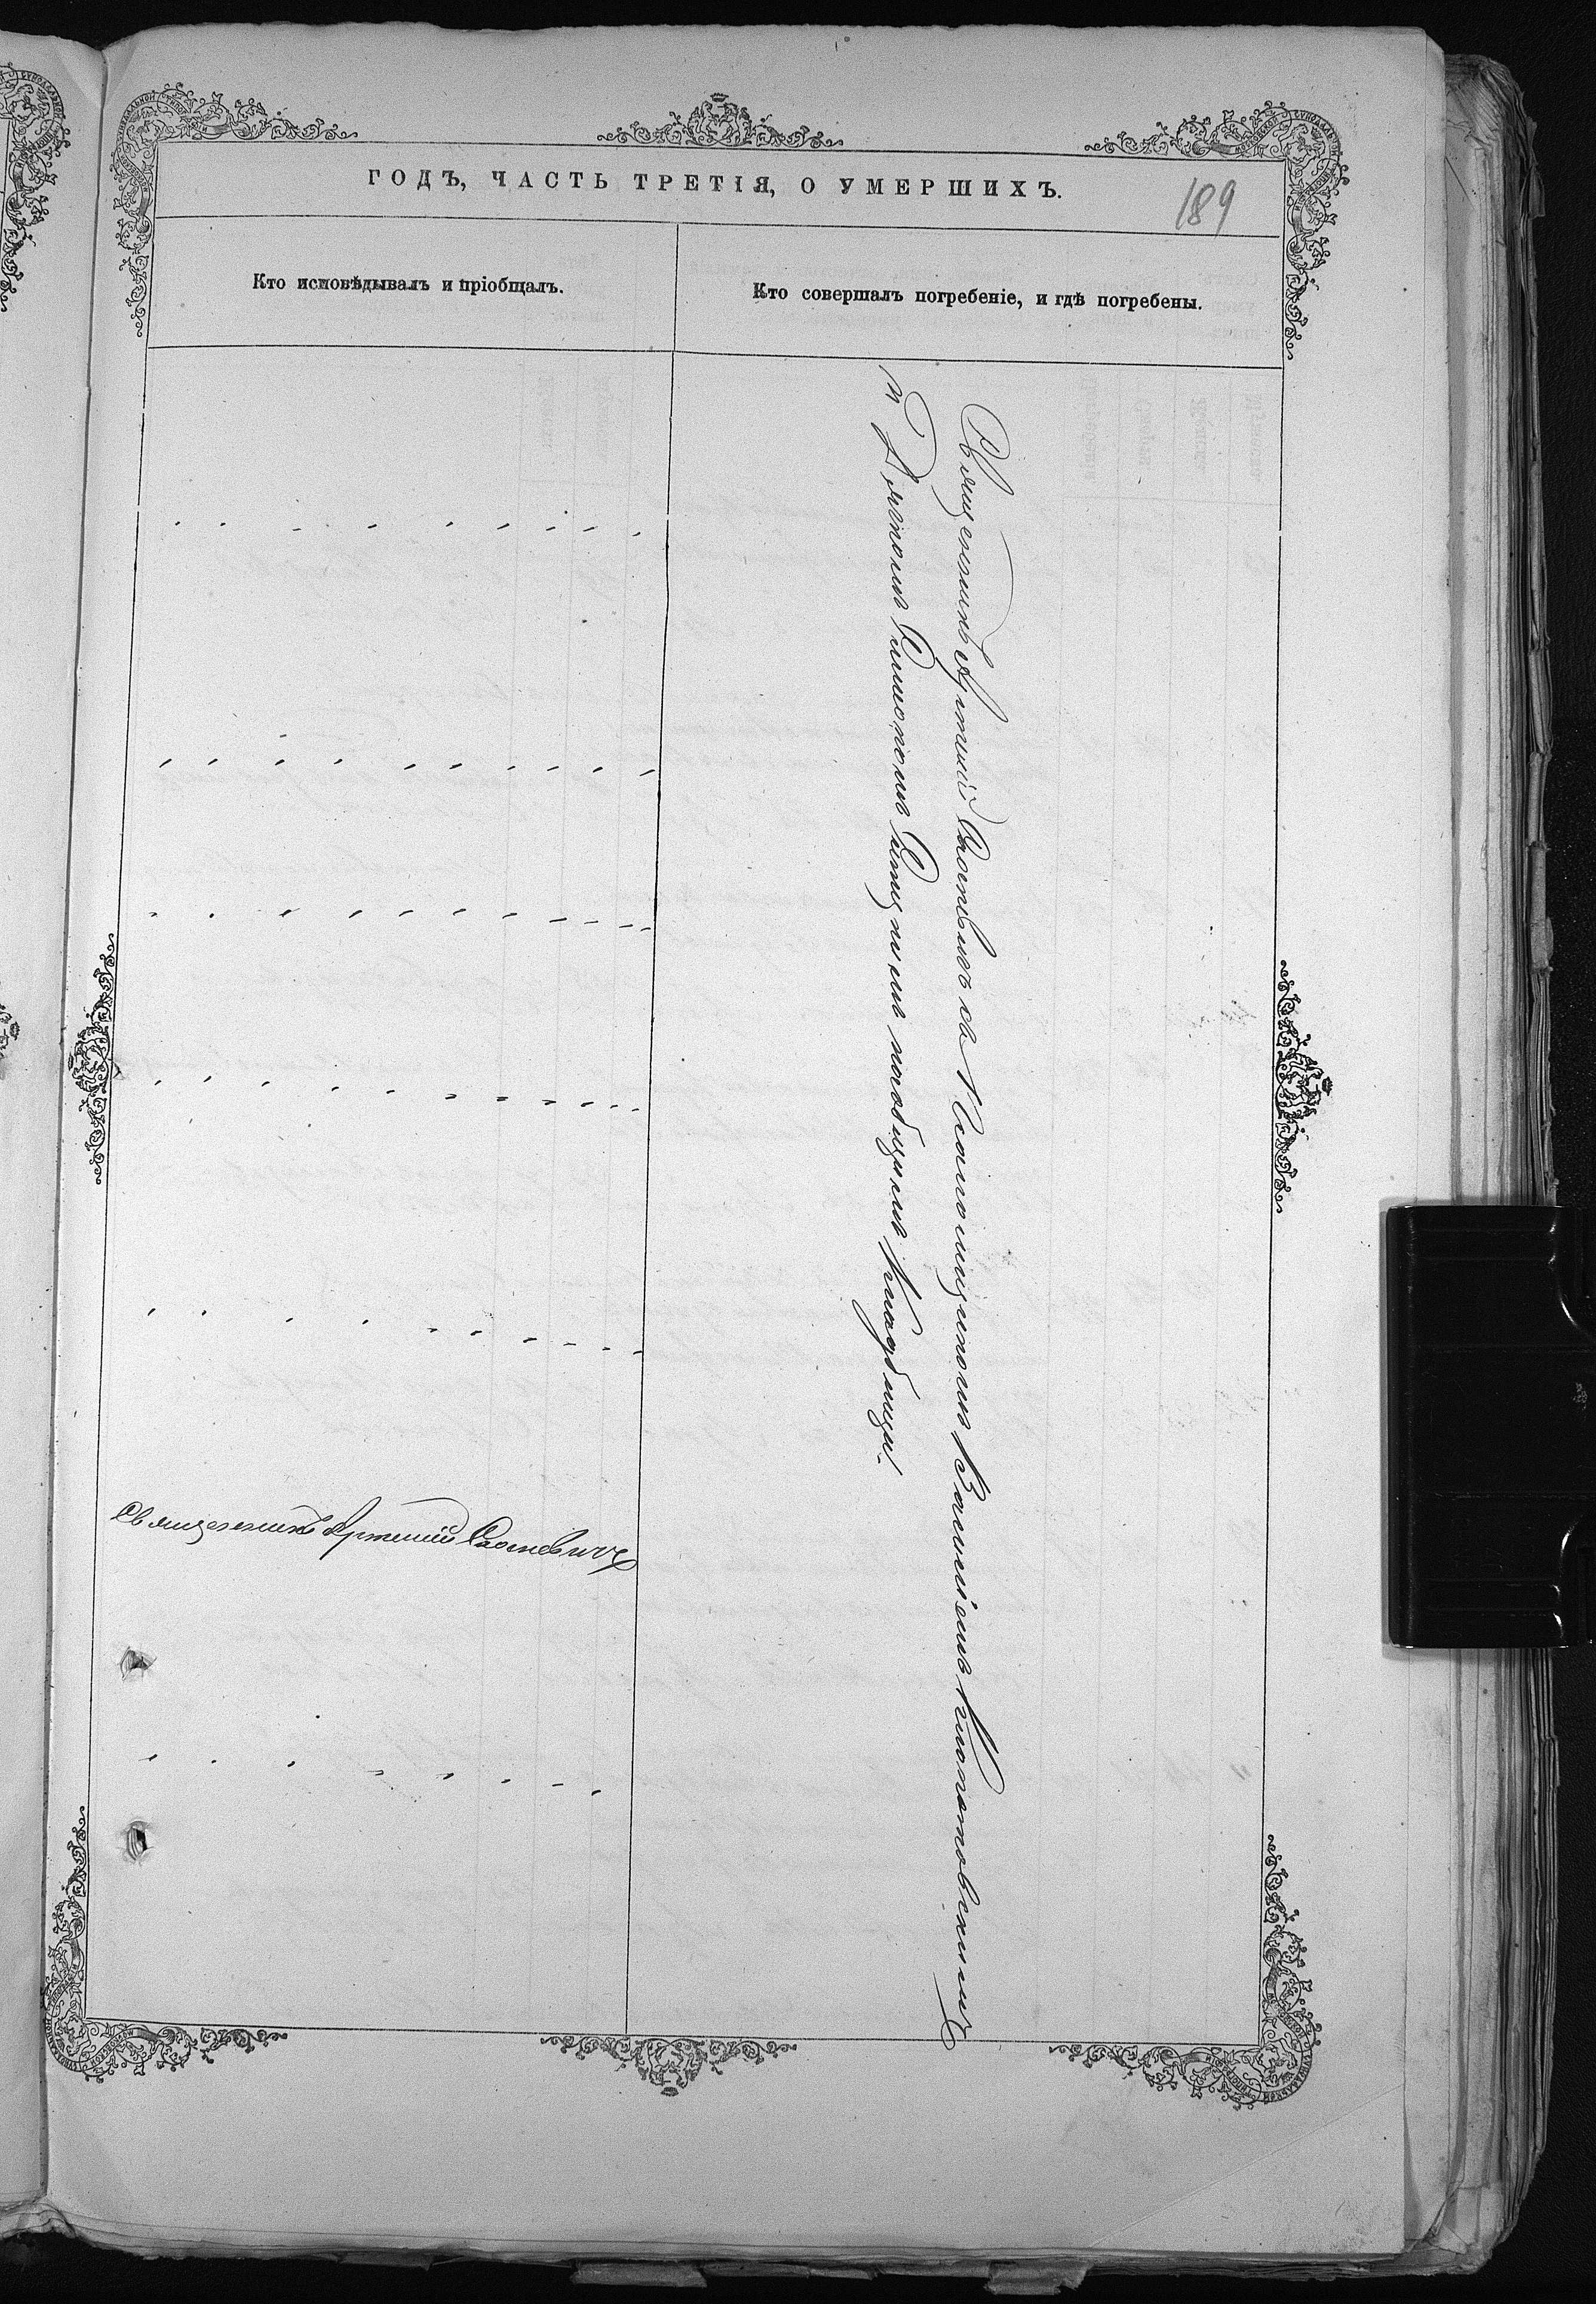 ГОДЪ, ЧАСТЬ ТРЕТІЯ, О УМЕРШИХЪ.
189
Кто исповѣдывалъ и пріобщалъ.
Кто совершалъ погребеніе, и гдѣ погребены.
Священникъ Артемій съ Псаломщикомъ Василіемъ
и Дьячкомъ на общемъ кладбищѣ.
Священникъ Артемій